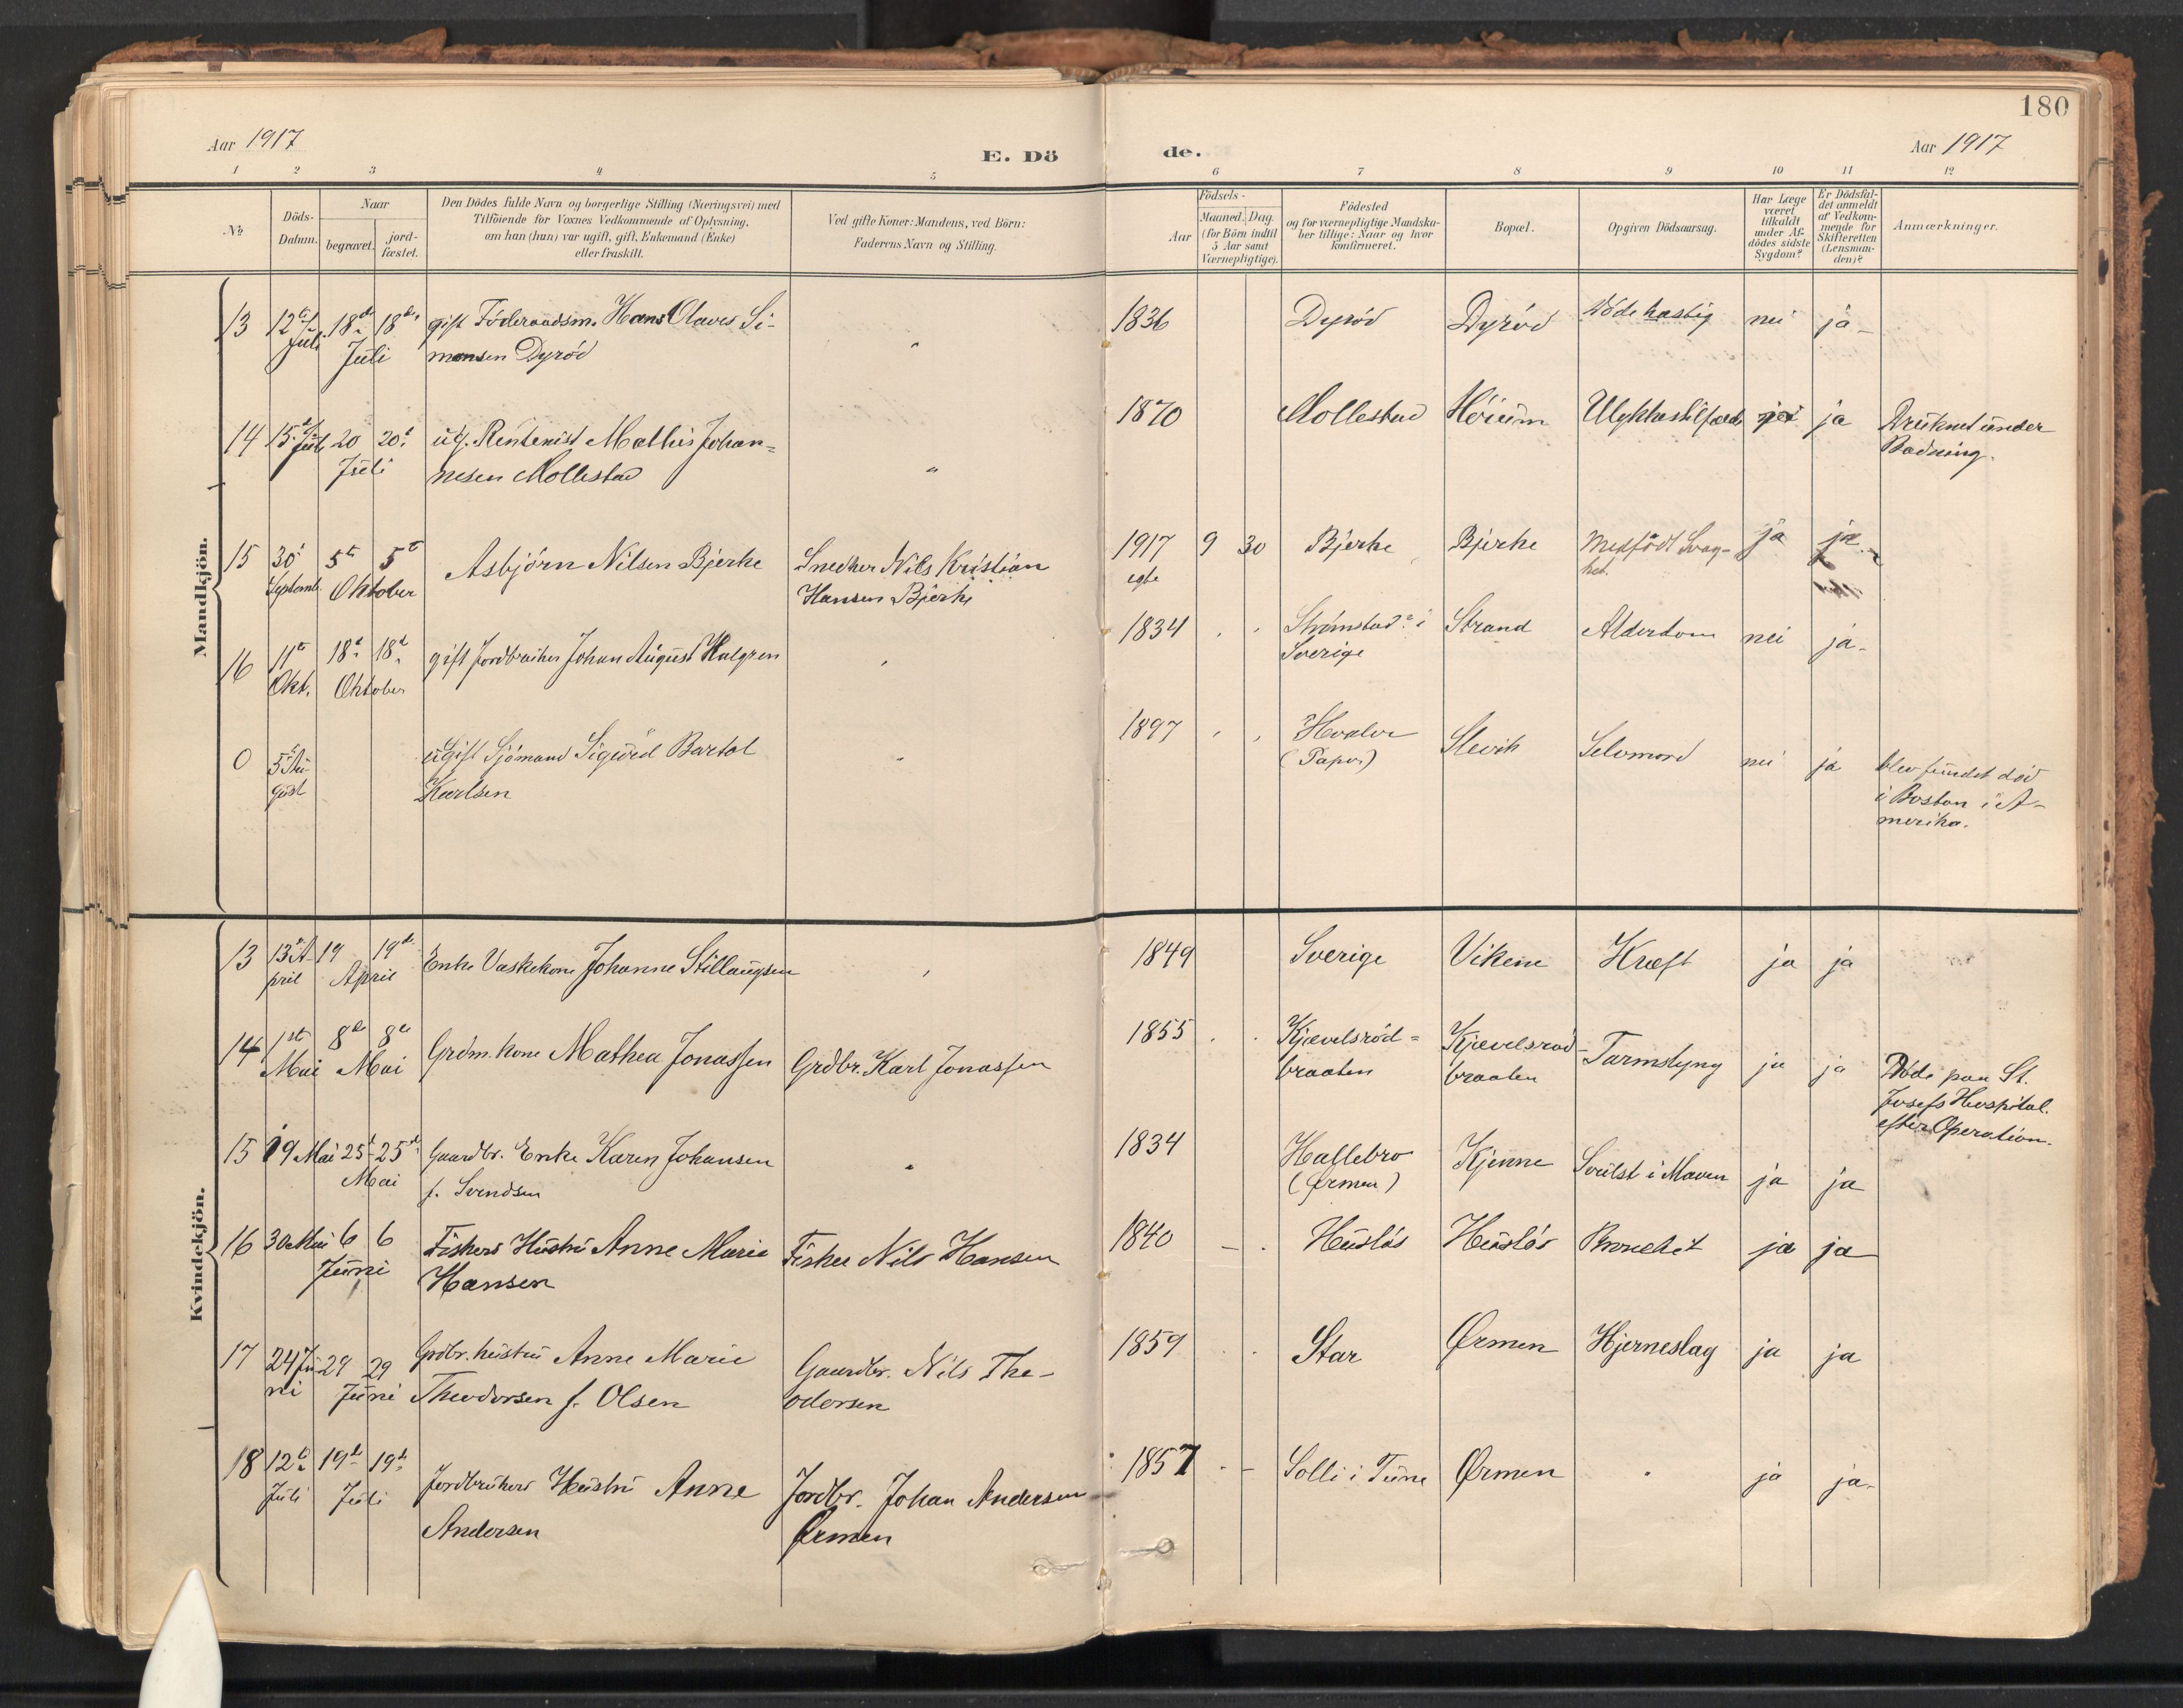 180
Aar 1917
E. Dö
de.
Aar 1917
1 2 3 4 5 6 7 8 9 10 11 12
No
Döds-Datum.
Naar
begravet.
jord-fæstet.
Den Dödes fulde Navn og borgerlige Stilling (Næringsvei) med
Tilföiende for Voxnes Vedkommende af Oplysning,
om han (hun) var ugift, gift, Enkemand (Enke)
eller fraskilt.
Ved gifte Koner: Mandens, ved Börn:
Faderens Navn og Stilling.
Födsels-
Aar
Maaned. Dag.
(for Börn indtil
5 Aar samt
Værnepligtige).
Födested
og for værnepligtige Mandska-
ber tillige: Naar og hvor
konfirmeret.
Bopæl.
Opgiven Dödsaarsag.
Har Læge
været
tilkaldt
under Af-
dödes sidste
Sygdom?
Er Dödsfal-
det anmeldt
af Vedkom-
mende for
Skifteretten
(Lensman-
den)?
Anmærkninger.
Mandkjön.
13 12te Juli 18de 18de Juli gift Föderaadsm. Hans Olaves Si-
monsen Dyröd " 1836 Dyröd Dyröd Döde hastig nei ja
14 15de Juli 20 20de Juli ug. Rentenist Mathis Johan-
nesen Mollestad " 1870 Mollestad Höium Ulykkestilfæld ja Druknet under
Badning.
15 30 Septemb. 5te 5te Oktober Asbjörn Nilsen Bjerke Snedker Nils Kristian
Hansen Bjerke 1917 egte 9 30 Bjerke Bjerke Medfödt Svag-
het. ja ja
16 11te Okt. 18de 18de Oktober gift Jordbruker Johan August Halgren " 1834 Strömstad i
Sverige Strand Alderdom nei ja
0 5te Au-
gust ugift Sjömand Sigurd Bartol
Karlsen " 1897 Hvaler
(Papor) Slevik Selvmord nei ja blev fundet död
i Boston i A-
merika.
Kvindekjön.
13 13 A-
pril 19 19de April Enke Vaskekone Johanne Stillaugsen " 1849 Sverige Vikene Kræft ja ja
14 1ste Mai 8de 8de Mai Grdm. kone Mathea Jonassen Grdbr. Karl Jonassen 1855 Kjævelsröd-
braaten Kjævelsröd-
braaten Tarmslyng ja ja Döde paa St.
Josefs Hospital
efter Operation.
15 19 Mai 25de 25de Mai Gaardbr. Enke Karen Johansen
f. Svendsen " 1834 Hallebro
(Ørmen) Kjenne Svulst i Maven ja ja
16 30 Mai 6 6 Juni Fiskers Hustru Anne Marie
Hansen Fisker Nils Hansen 1840 Huslös Huslös Bronchit ja ja
17 24 Ju-
ni 29 29 Juni Grdbr. hustru Anne Marie
Theodorsen f. Olsen Gaardbr. Nils The-
odorsen 1859 Star Ørmen Hjerneslag ja ja
18 12te Juli 19de 19de Juli Jordbrukers Hustru Anne
Andersen Jordbr. Johan Andersen
Ørmen 1857 Solli i Tune Ørmen " ja ja